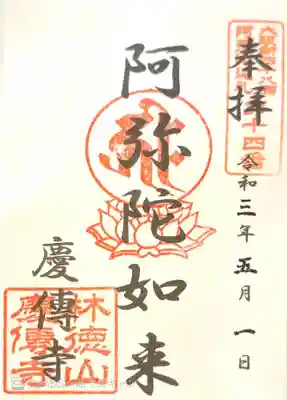 奉拝
令和三年五月一日
阿弥陀如来
慶傳寺
休徳山
慶傳寺